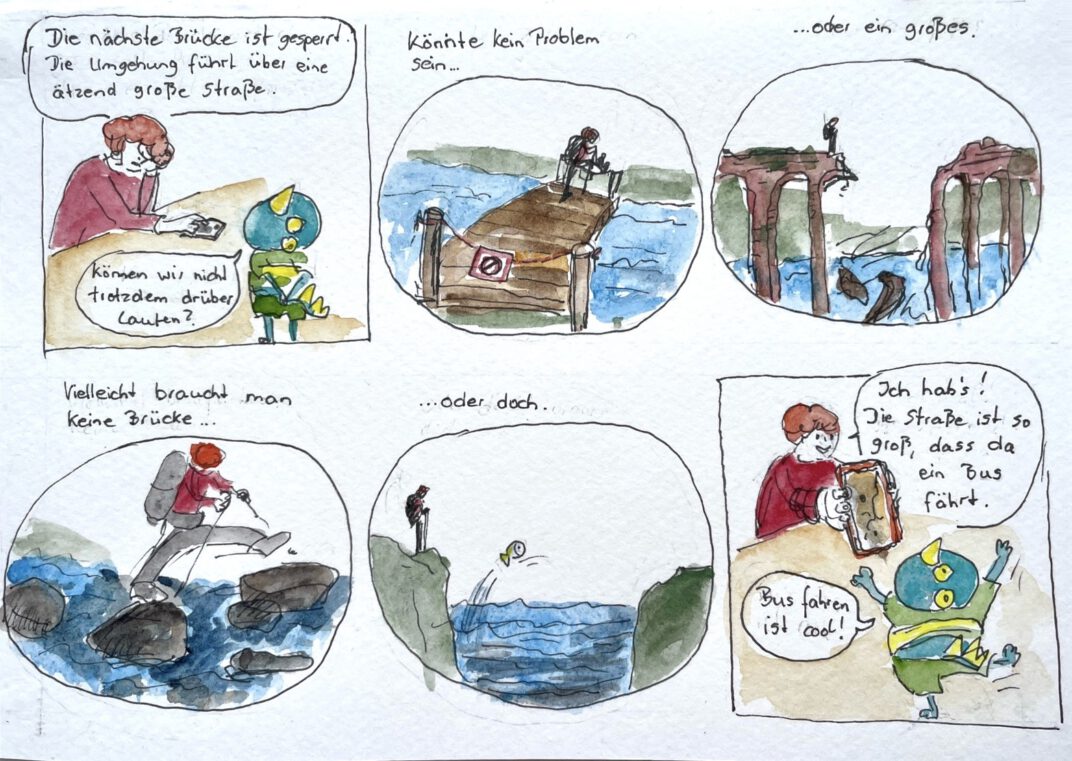 Die nächste Brücke ist gesperrt.
Die Umgehung führt über eine
ätzend große Straße.
Können wir nicht
trotzdem drüber
laufen?
Könnte kein Problem
sein...
...oder ein großes.
Vielleicht braucht man
keine Brücke...
...oder doch.
Ich hab's!
Die Straße ist so
groß, dass da
ein Bus
fährt.
Bus fahren
ist cool!